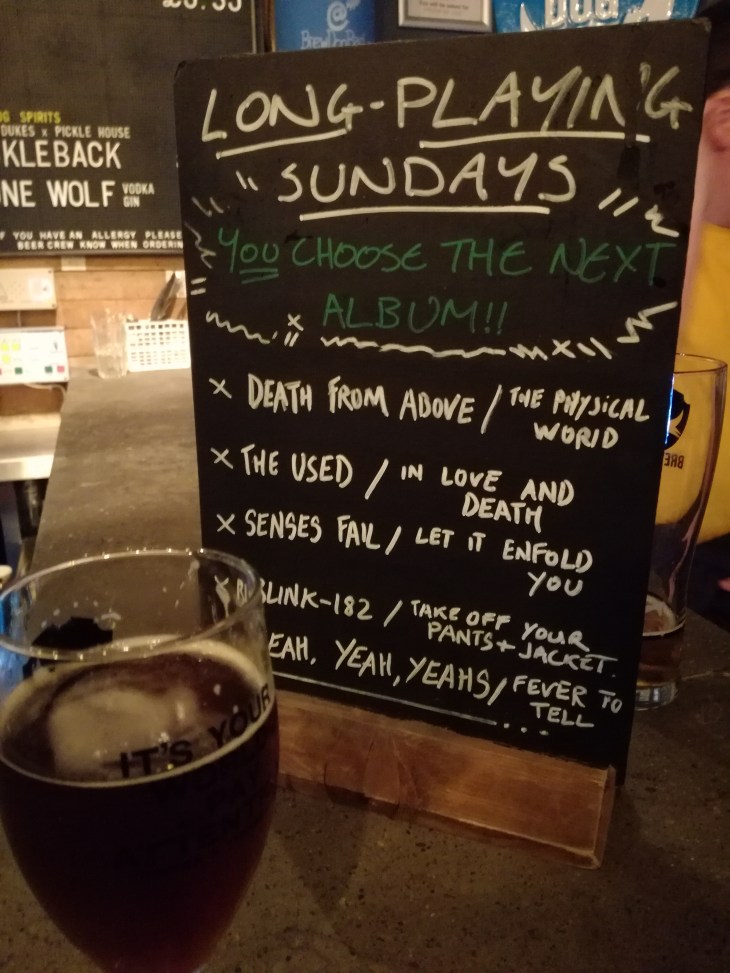 £5.95
@
BrewDogBed
DOG
OG SPIRITS
DUKES x PICKLE HOUSE
KLEBACK
ONE WOLF VODKA
GIN
F YOU HAVE AN ALLERGY PLEASE
BEER CREW KNOW WHEN ORDERIN
LONG-PLAYIN'G
"SUNDAYS"
YOU CHOOSE THE NEXT
ALBUM!!
x DEATH FROM ABOVE / THE PHYSICAL
WORLD
x THE USED / IN LOVE AND
DEATH
x SENSES FAIL / LET IT ENFOLD
YOU
x BLINK-182 / TAKE OFF YOUR
PANTS + JACKET.
EAH, YEAH, YEAHS / FEVER TO
TELL
...
BRE
IT'S YOUR